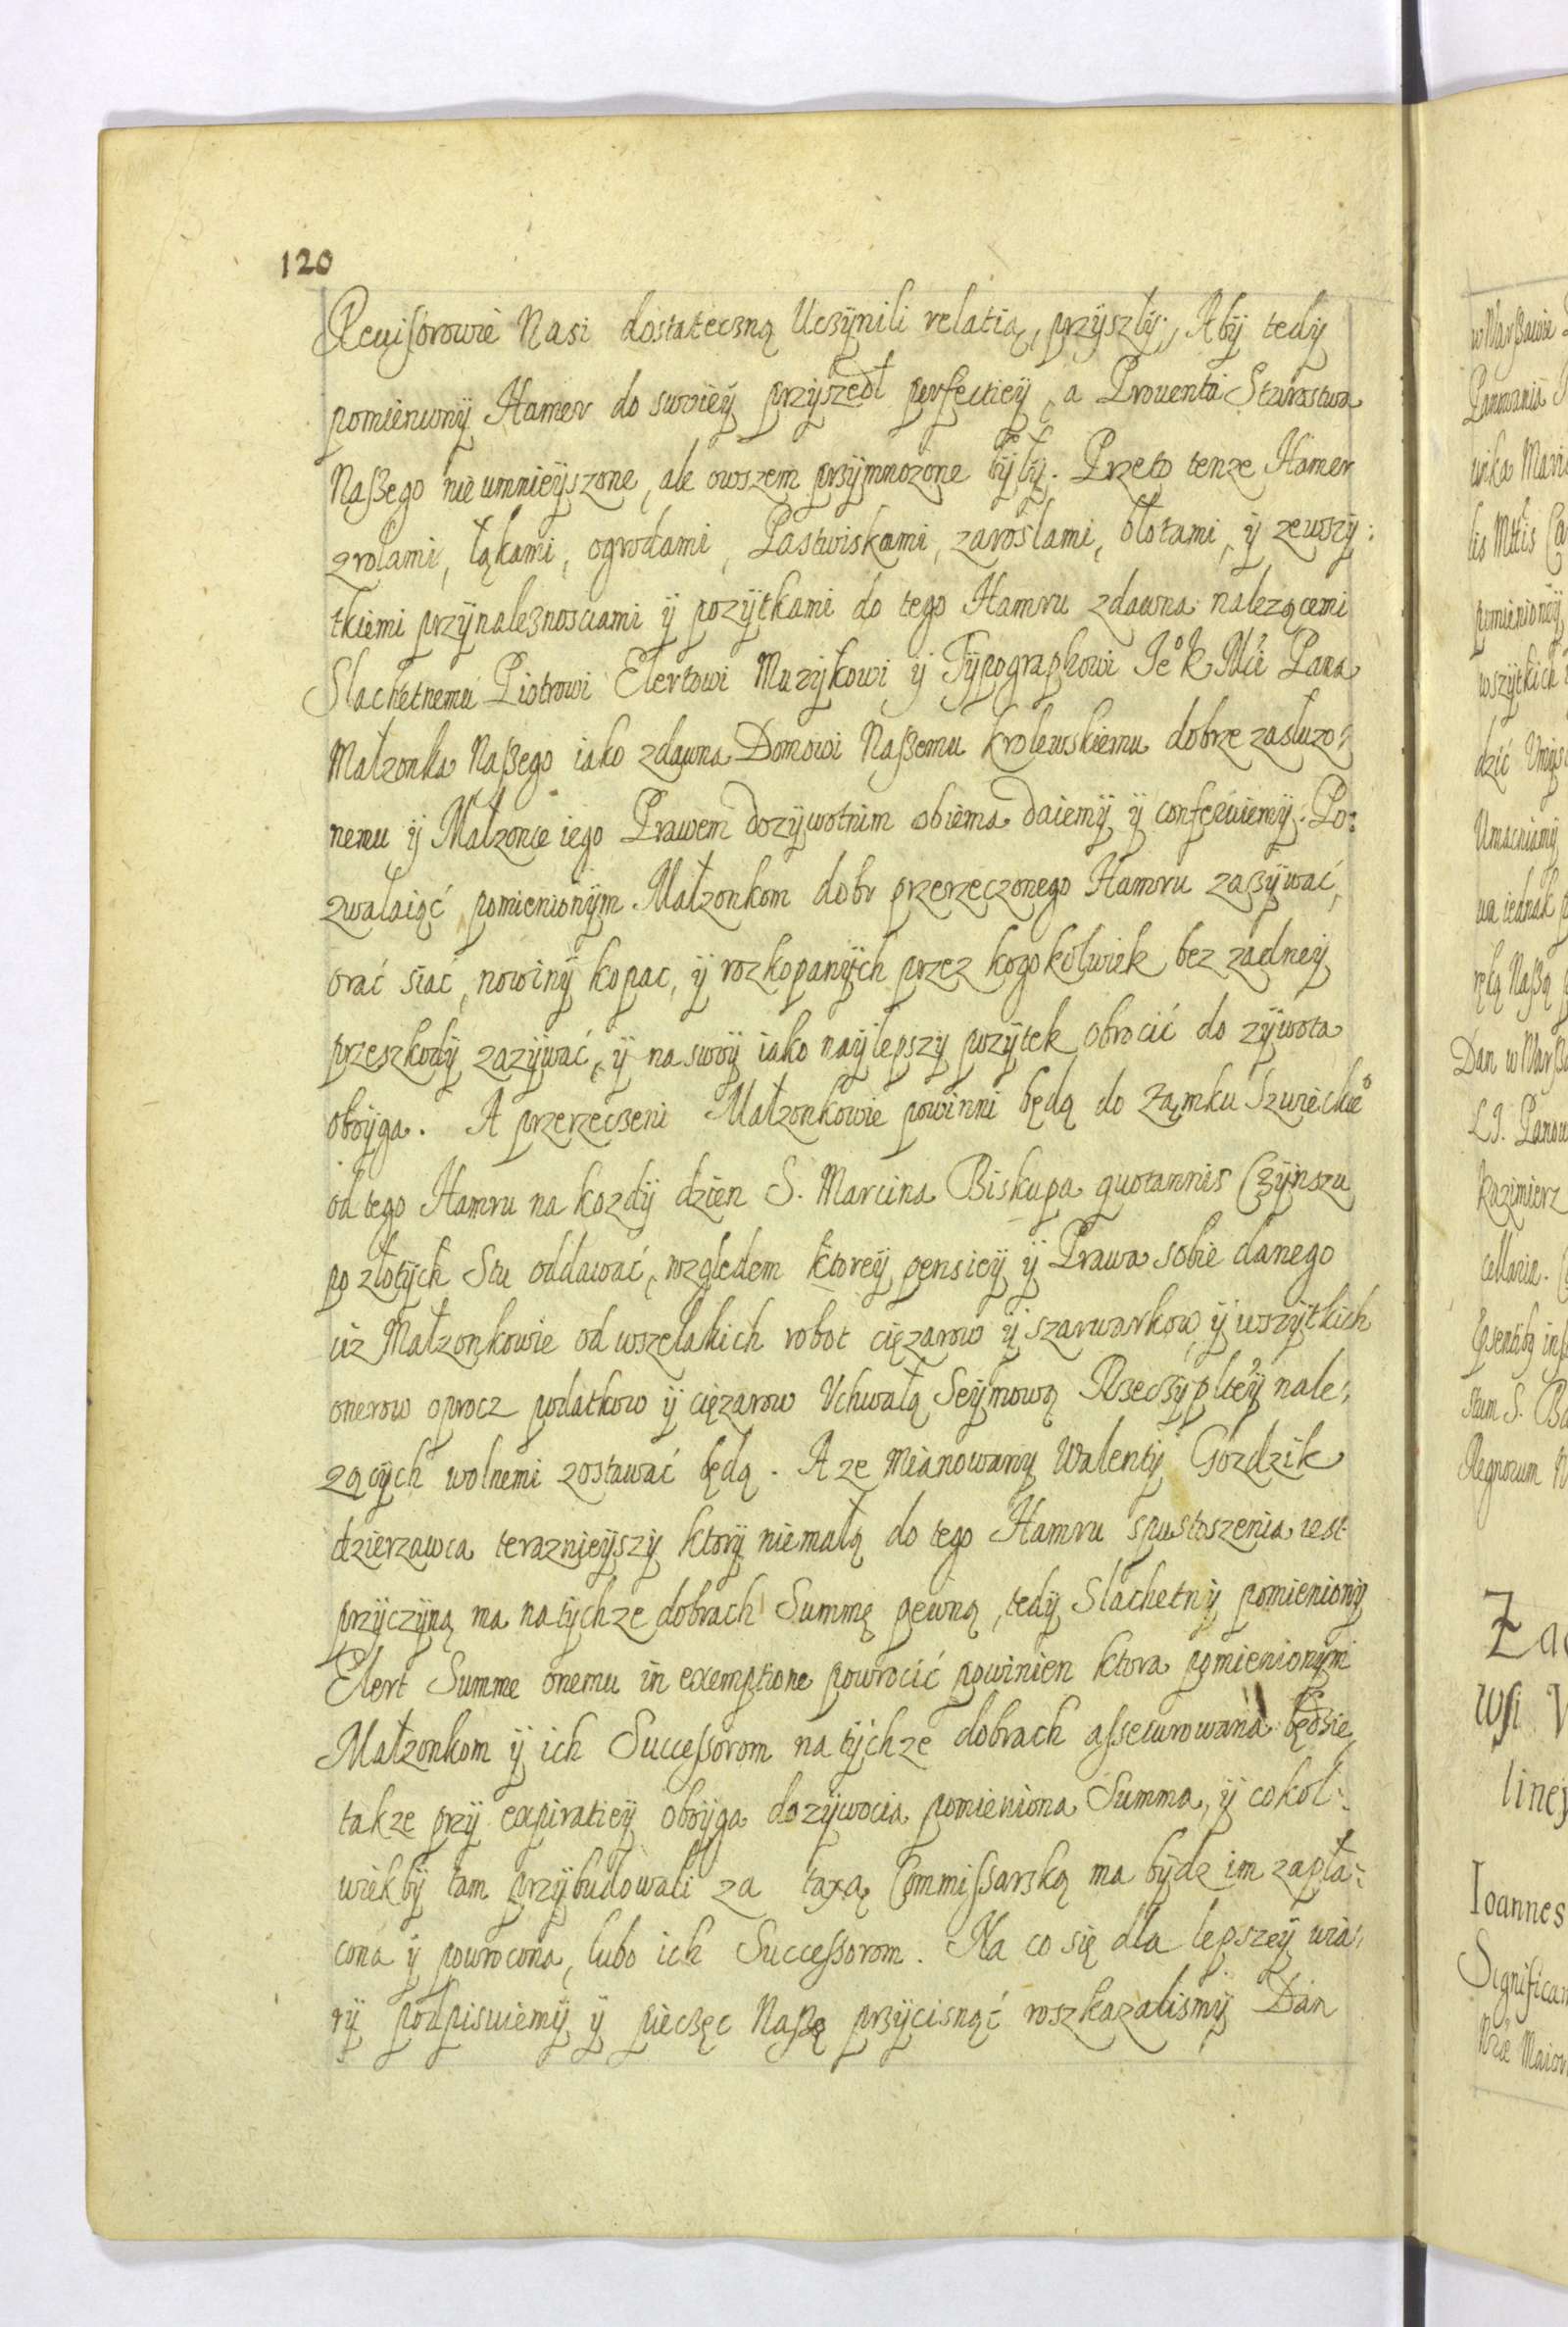 120
Reuisorowie Nasi dostateczną Uczÿnili relatią, przÿszłÿ; Abÿ tedÿ
pomienionÿ Hamer do swoieÿ przÿszedł perfectieÿ, a Prouenta Starostwa
Naßego nie umnieÿszone, ale owszem przÿmnozone bÿłÿ. Przeto tenze Hamer
z rolami, łąkami, ogrodami, Pastwiskami, zaroslami, błotami, ÿ ze wszÿ:
tkiemi przÿnaleznosciami ÿ pozÿtkami do tego Hamru zdawna nalezącemi
Slachetnemu Piotrowi Elertowi Muzÿkowi ÿ Tÿpographowi Jeº K Mci Pana
Małzonka Naßego iako zdawna Domowi Naßemu krolewskiemu dobrze zasłuzo:
nemu ÿ Małzonce iego Prawem dozÿwotnim obiema daiemÿ ÿ conferuiemÿ. Po:
zwalaiąć pomienionÿm Małzonkom dobr przerzeczonego Hamru zazÿwać,
orać siać, nowinÿ kopac, ÿ rozkopanÿch przez kogokolwiek bez zadneÿ
przeszkodÿ zazÿwać, ÿ na swoÿ iako naÿlepszÿ pozÿtek obrocić do zÿwota
oboÿga. A przerzeczeni Małzonkowie powinni będą do Zamku Szwieckieº
od tego Hamru na kozdÿ dzien S. Marcina Biskupa quotannis Czÿnszu
po złotÿch Stu oddawać, względem ktoreÿ pensieÿ ÿ Prawa sobie danego
ciz Małzonkowie od wszelakich robot cięzarow ÿ szarwarkow, ÿ wszÿtkich
onerow oprocz podatkow ÿ cięzarow Vchwałą Seÿmową Rzeczÿplteÿ nale:
zącÿch wolnemi zostawać będą. A ze mianowanÿ Walentÿ Gozdzik
dzierzawca teraznieÿszÿ ktorÿ niemałą do tego Hamru spustoszenia iest
przÿczÿną ma na tÿchze dobrach Summę pewną, tedÿ Slachetnÿ pomienionÿ
Elert Summe onemu in exemptione powrocić powinien ktora pomienionÿm
Małzonkom ÿ ich Successorom na tÿchze dobrach assecurowana będzie,
takze przÿ expiratieÿ oboÿga dozÿwocia pomieniona Summa, ÿ cokol:
wiekbÿ tam przÿbudowali za taxą Commissarską ma bÿdz im zapła:
cona ÿ powrocona, lubo ich Successorom. Na co się dla lepszeÿ wia:
rÿ podpisuiemÿ ÿ pieczęc Naßę przÿcisnąć roszkazalismÿ Dan
Panowania
lis Mttis
pomienionÿ
wszÿtkich
dzić
Umacniamÿ
wa iednak
ręką Naßą
Dan w
Kazimierz
cellaria.
stum S.
Regnorum
Za
wsi
Ioannes
Significa